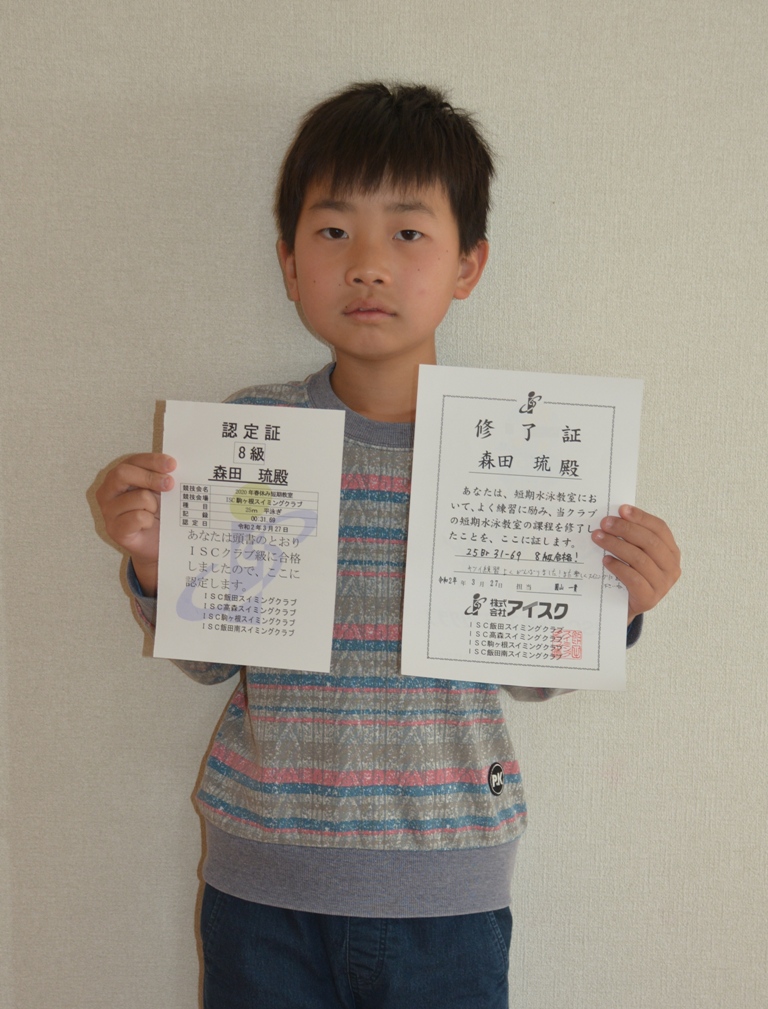 認定証
8級
森田 琉殿
競技会名 2020年春休み短期教室
競技会場 ISC駒ヶ根スイミングクラブ
種目 25m 平泳ぎ
記録 00:31.69
認定日 令和2年3月27日
あなたは頭書のとおり
ISCクラブ級に合格
しましたので、ここに
認定します。
ISC飯田スイミングクラブ
ISC高森スイミングクラブ
ISC駒ヶ根スイミングクラブ
ISC飯田南スイミングクラブ
修了証
森田 琉殿
あなたは、短期水泳教室にお
いて、よく練習に励み、当クラブ
の短期水泳教室の課程を修了し
たことを、ここに証します。
25Br 31-69 8級合格!
令和2年3月27日 担当
株式会社アイスク
ISC飯田スイミングクラブ
ISC高森スイミングクラブ
ISC駒ヶ根スイミングクラブ
ISC飯田南スイミングクラブ
PK